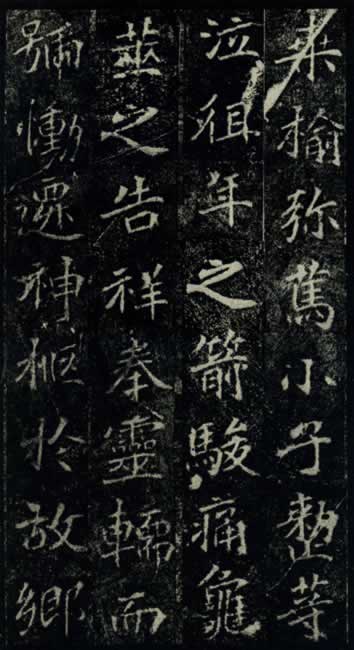 桑榆弥篤小子等
泣徂年之箭駿痛龜
筮之告祥奉靈轜而
號慟遷神柩於故鄉